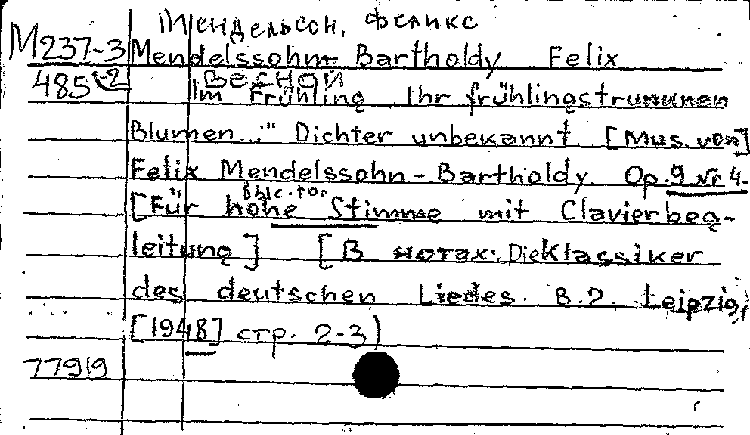 Мендельсон, Феликс
М237-3 Mendelssohn-Bartholdy Felix
485-2 Весной
Im Frühling Ihr frühlingstrunknen
Blumen..." Dichter unbekannt. [Mus. von]
Felix Mendelssohn-Bartholdy. Op.9 Nr 4.
Выс. гол
[Für hohe Stimme mit Clavierbeg-
leitung] [В нотах: Die Klassiker
des deutschen Liedes. B.2. Leipzig,
[1948] стр. 2-3)
77919